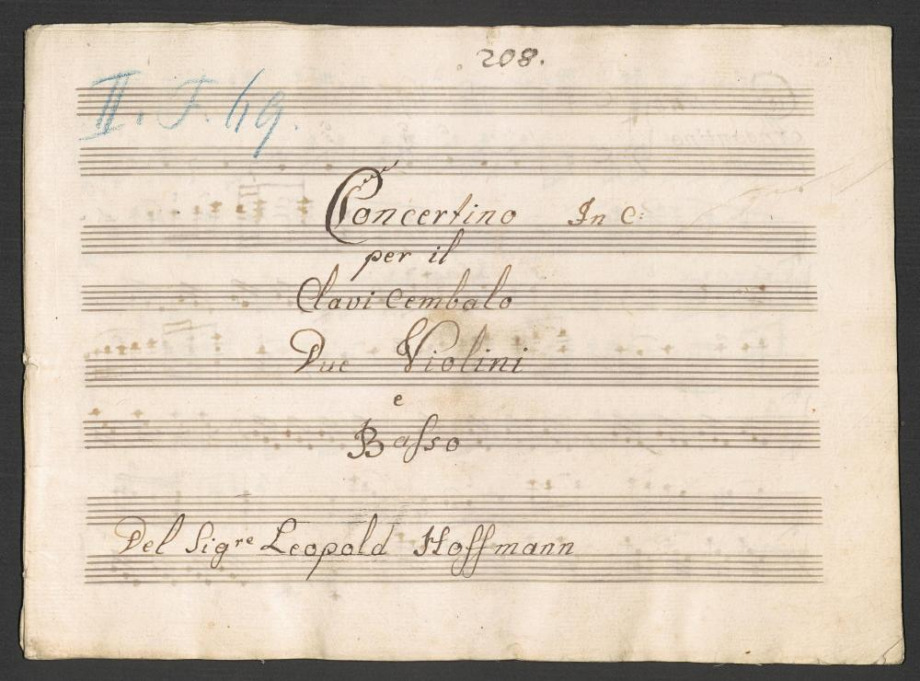 208.
II. F. 49.
Concertino In C:
per il
Clavi-Cembalo
Due Violini
e
Basso
Del Sigre Leopold Hoffmann